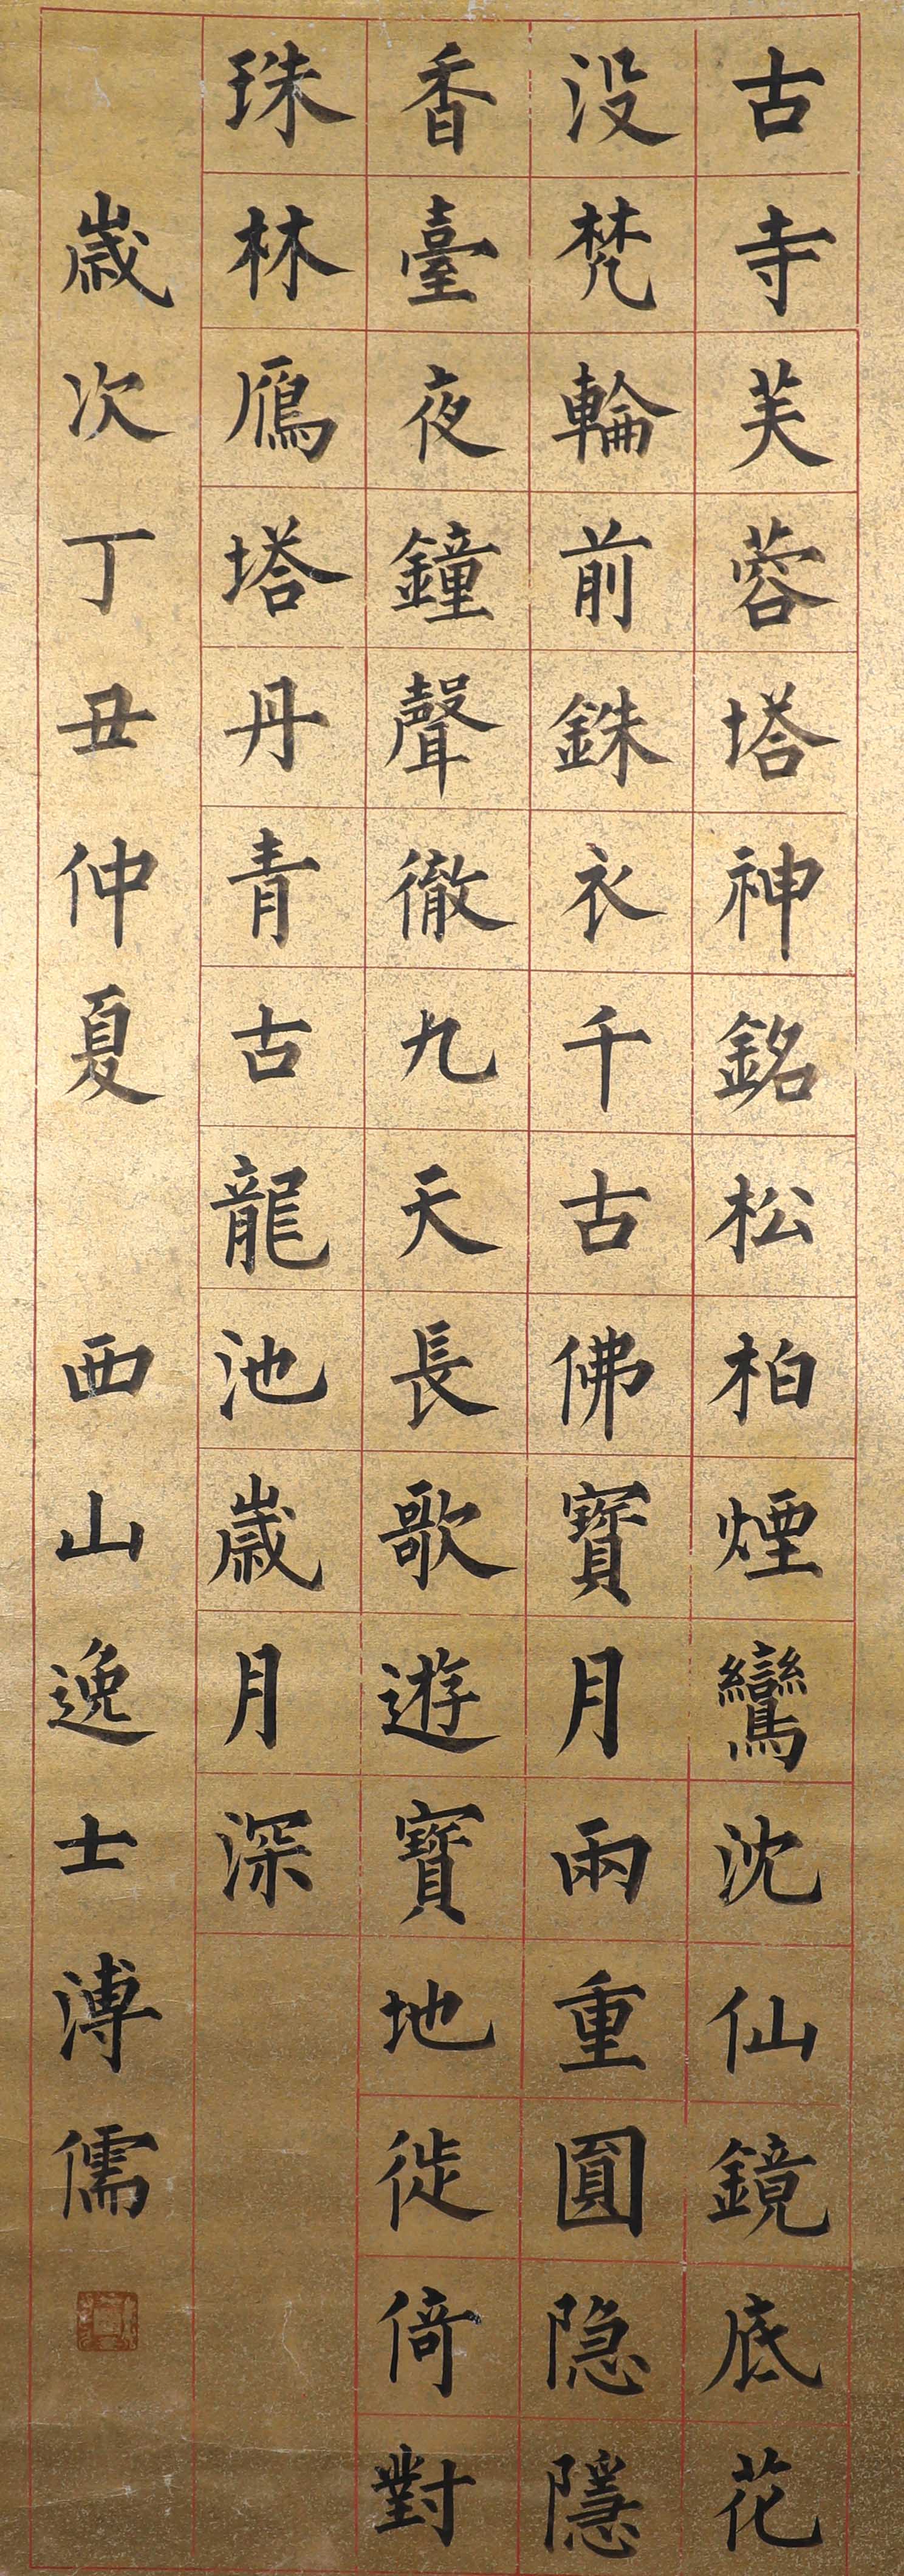 古寺芙蓉塔神銘松柏煙鸞沈仙鏡底花
没梵輪前銖衣千古佛寶月兩重圓隐隱
香臺夜鐘聲徹九天長歌遊寶地徙倚對
珠林鴈塔丹青古龍池歲月深
歲次丁丑仲夏 西山逸士溥儒